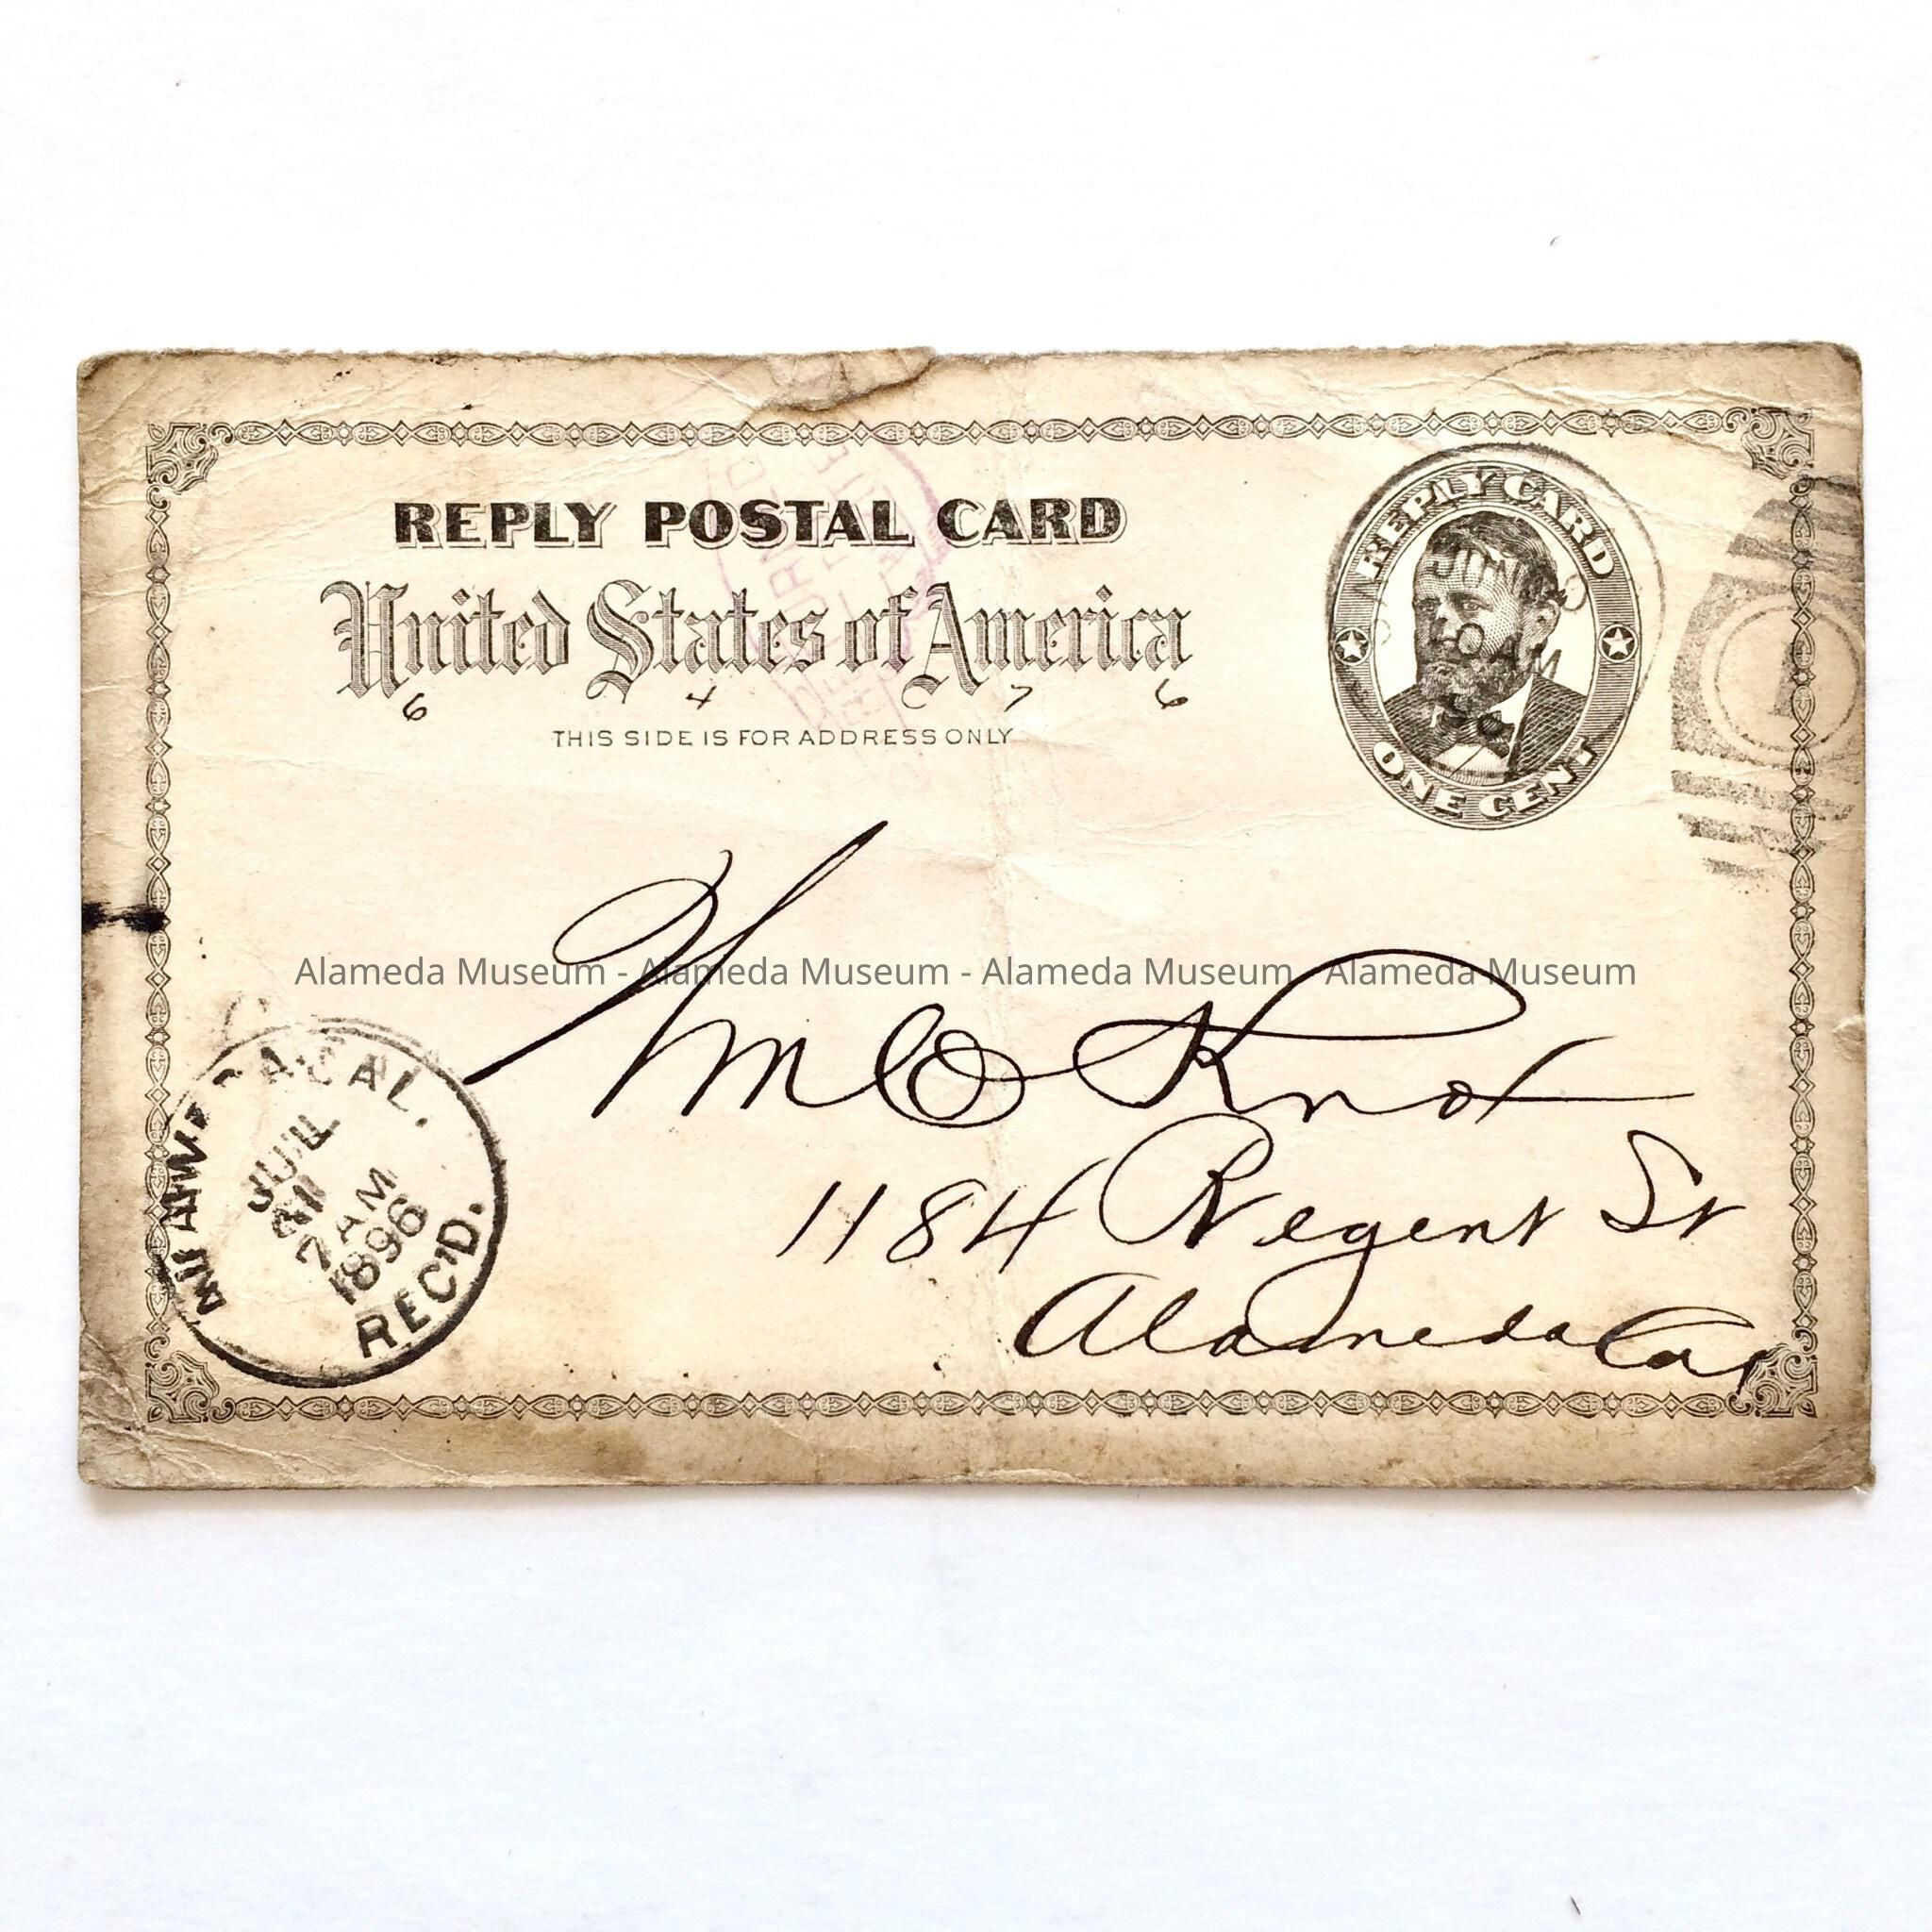 REPLY POSTAL CARD
United States of America
6 4 7 6
THIS SIDE IS FOR ADDRESS ONLY
REPLY CARD
ONE CENT
JUN
AM
Alameda Museum - Alameda Museum - Alameda Museum - Alameda Museum
Wm Co Knox
1184 Regent St
Alameda Cal
CAL.
JUL
7 AM
1896
REC'D.